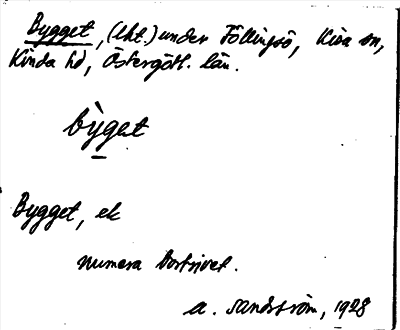 Bygget, (lht.) under Föllingsö, Kisa sn,
Kinda hd, Östergötl. län.
bỳget
Bygget, ek
numera bortrivet.
A. Sandström, 1928